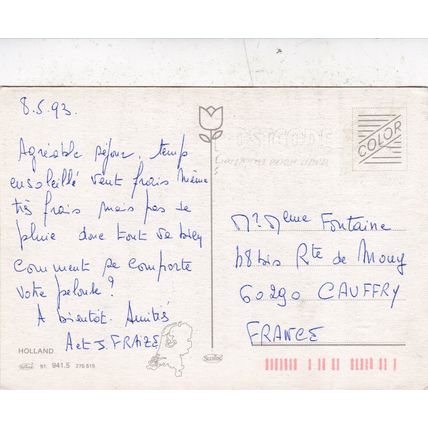 8.5.93.
Agréable séjour, temp
ensoleillé vent frais même
très frais mais pas de
pluie donc tout va bien
Comment se comporte
votre pelouse?
A bientôt. Amitiés
A et J. FRAIZE
HOLLAND
91. 941.5 276515
COLOR
Mr. Mme Fontaine
48 bis Rte de Mouy
60290 CAUFFRY
FRANCE